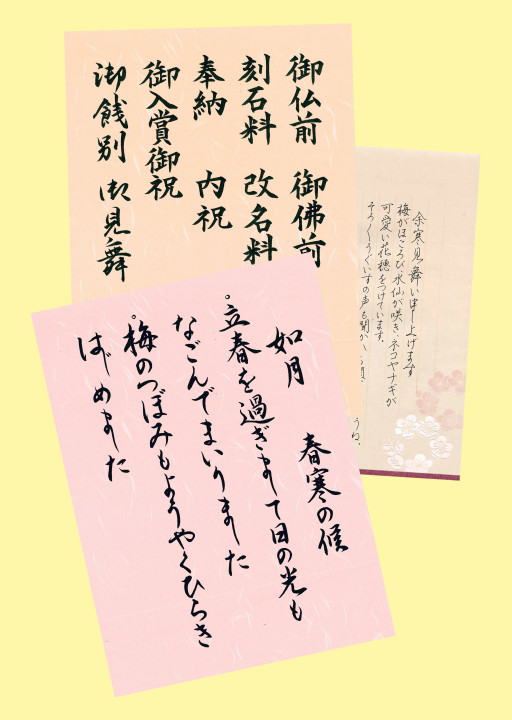 御仏前 御佛前
刻石料 改名料
奉納 内祝
御入賞御祝
御餞別 御見舞
余寒見舞い申し上げます
梅がほころび水仙が咲き、ネコヤナギが
可愛い花穂をつけています。
そろそろうぐいすの声も聞か
うね。
如月 春寒の候
。立春を過ぎまして日の光も
なごんでまいりました
。梅のつぼみもようやくひらき
はじめました